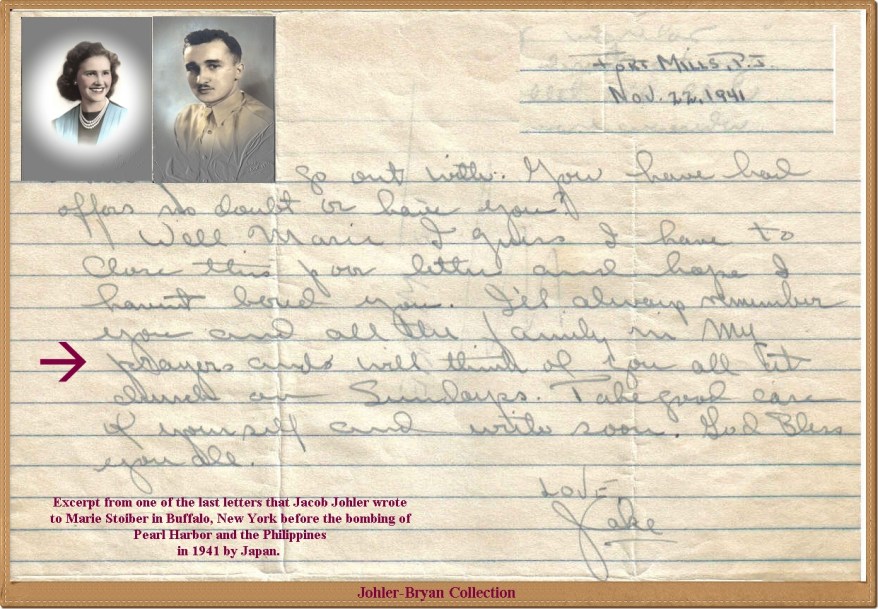 Fort Mills, P.I.
Nov. 22, 1941
go out with. You have had
offors no doubt or have you?
Well Marie I guess I have to
Close this poor letter and hope I
havent bored you. I'll always remember
you and all the family in My
prayers and will think of you all at
church on Sundays. Take good care
of yourself and write soon. God Bless
you all.
LOVE
Jake
Excerpt from one of the last letters that Jacob Johler wrote
to Marie Stoiber in Buffalo, New York before the bombing of
Pearl Harbor and the Philippines
in 1941 by Japan.
Johler-Bryan Collection